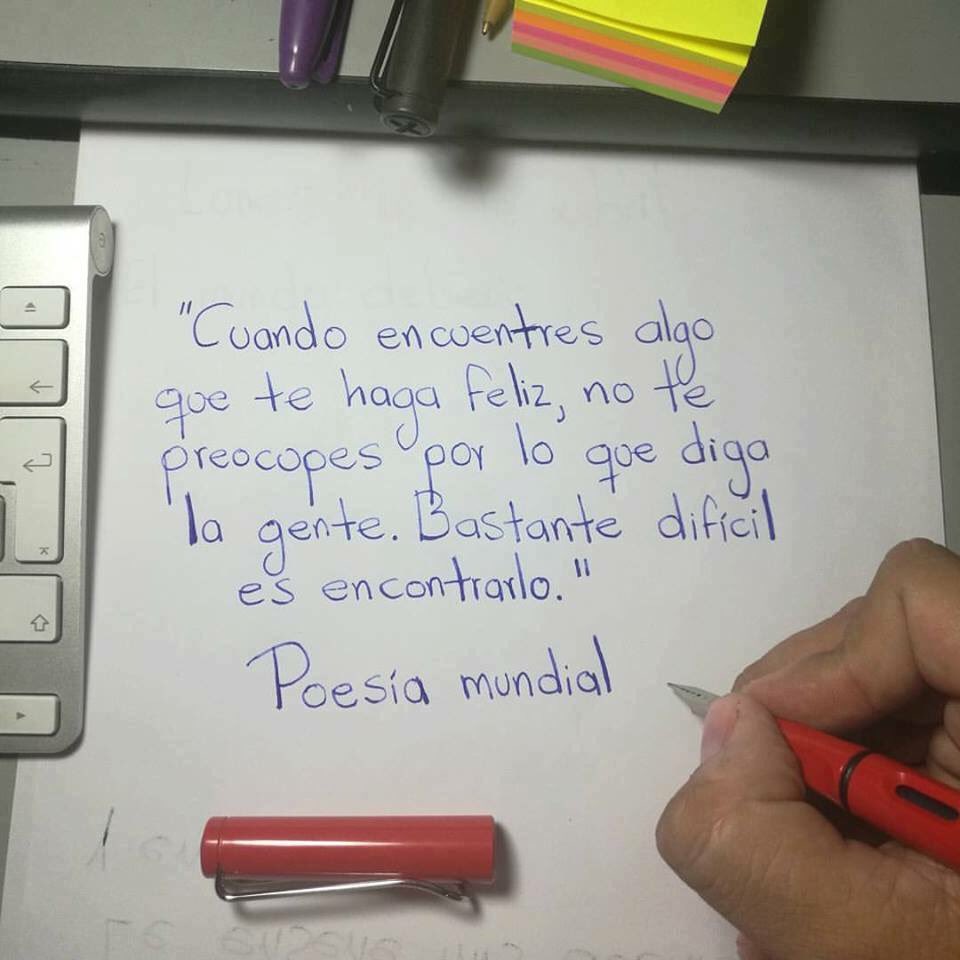 "Cuando encuentres algo
que te haga feliz, no te
preocopes por lo que diga
la gente. Bastante difícil
es encontrarlo."
Poesía mundial